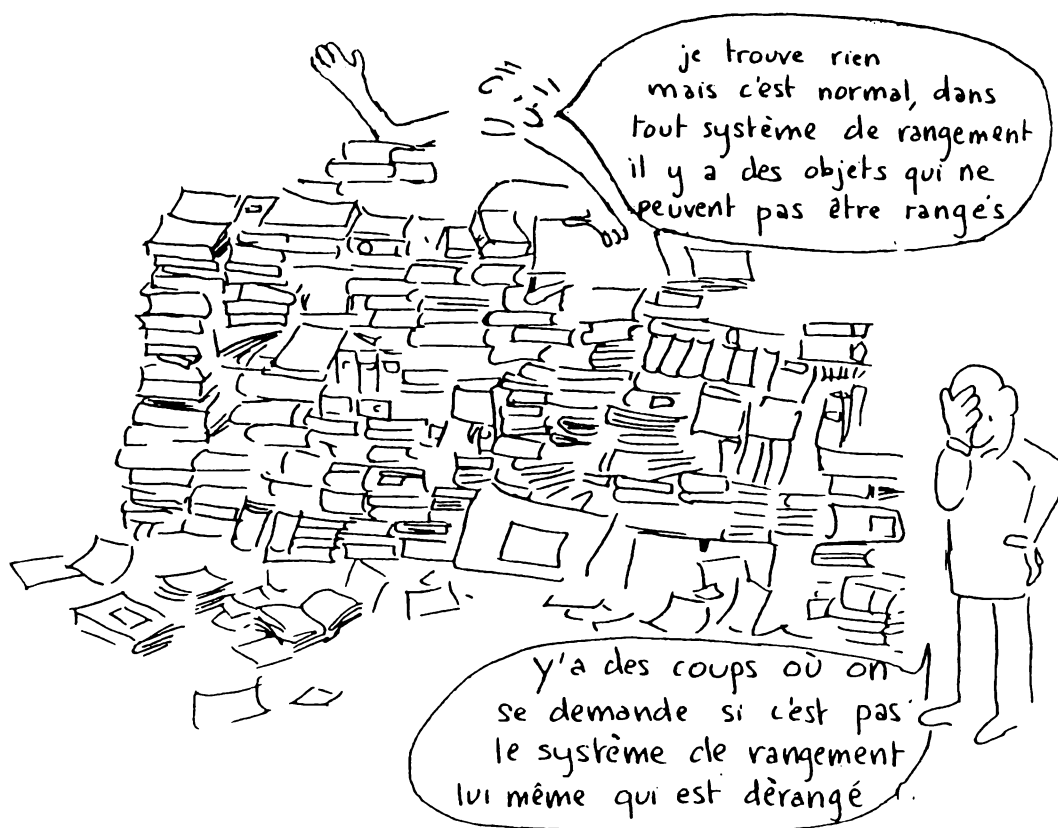 je trouve rien
mais c'est normal, dans
tout système de rangement
il y a des objets qui ne
peuvent pas être rangés
y'a des coups où on
se demande si c'est pas
le système de rangement
lui même qui est dérangé !